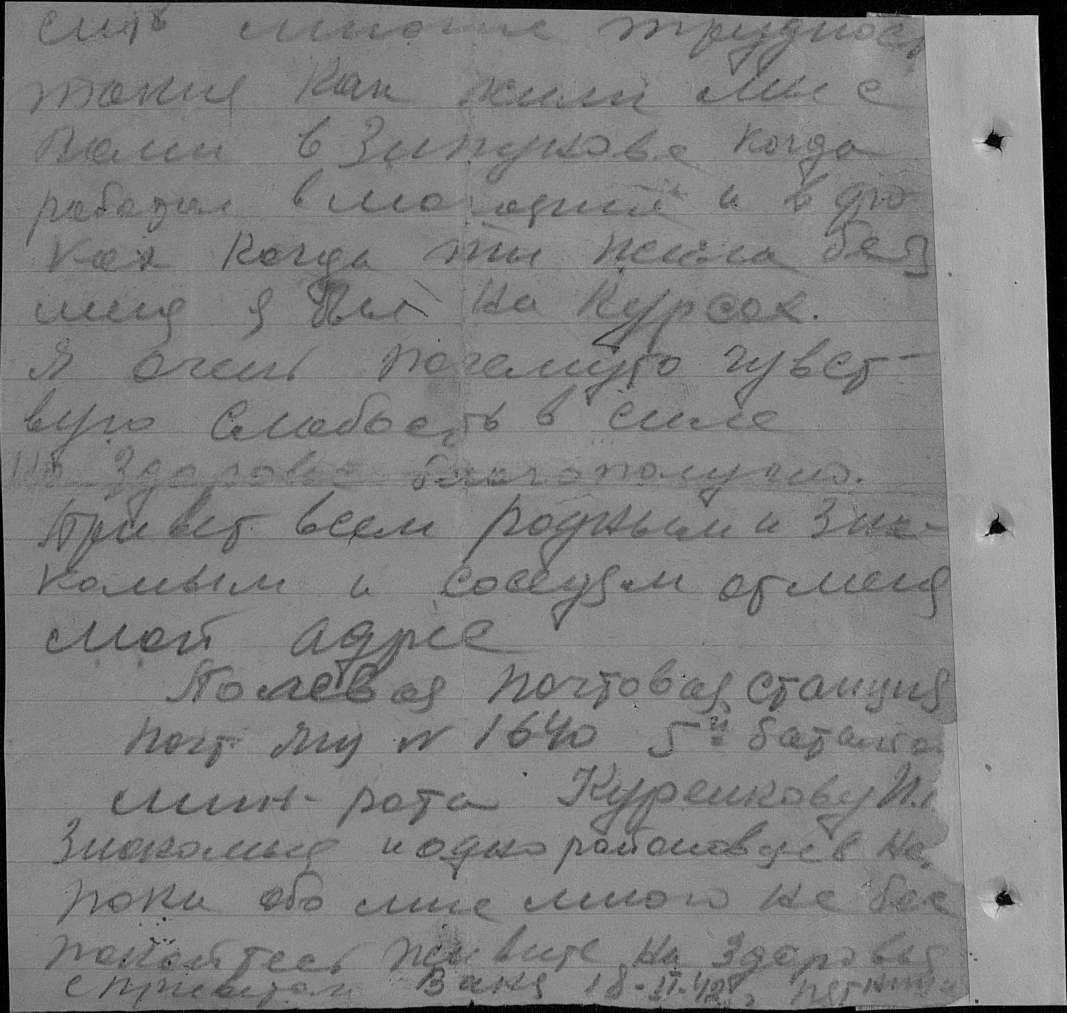 сить многие трудност
такия как жили мы с
Вами в Зипунове когда
работал в магазине и в
как когда ты жила без
меня я был на курсах.
Я очень почемуто чувст-
вую слабость в силе
но здоровье благополучно.
Привет всем родным и зна-
комым и соседям от меня
мой адрес
Полевая почтовая станция
почт ящ N 1640 5й баталио
мин-рота Куренкову И.
Знакомые и однорайоновцев не
пока обо мне много не бес
покойтесь живите на здоровья
с приветом Ваня 18-II-42.